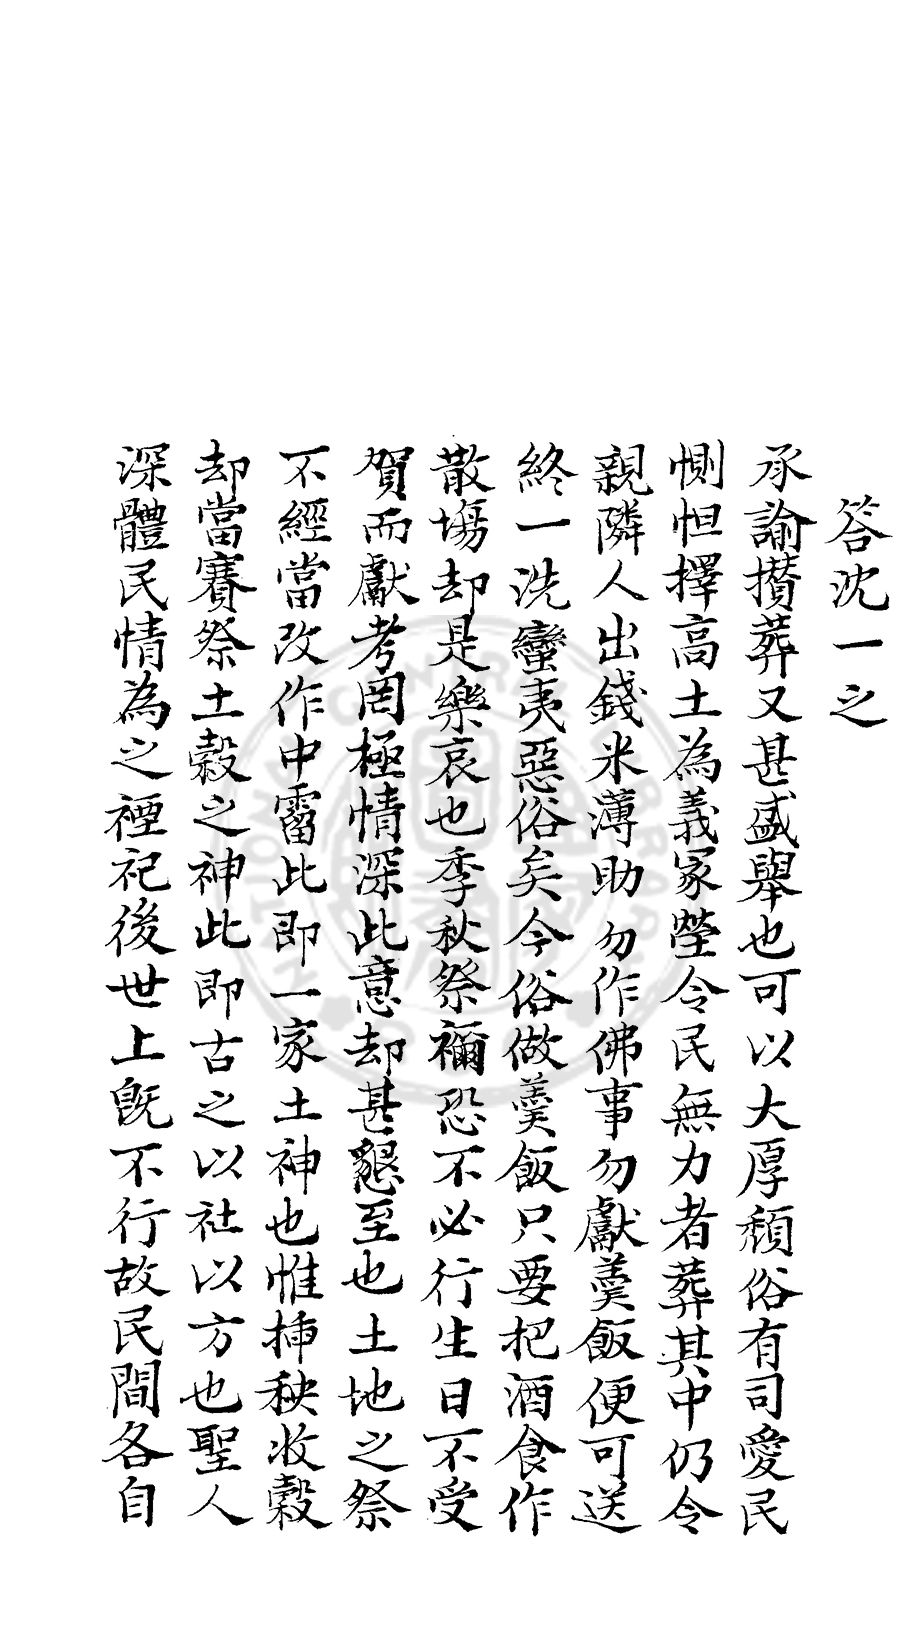 答沈一之
承諭攅葬又甚盛舉也可以大厚頹俗有司愛民
惻怛擇高土為義冢瑩令民無力者葬其中仍令
親隣人出錢米薄助勿作佛事勿獻羹飯便可送
終一洗蠻夷惡俗矣今俗做羹飯只要把酒食作
散塲却是樂哀也季秋祭禰恐不必行生日不受
賀而獻考罔極情深此意却甚懇至也土地之祭
不經當改作中霤此即一家土神也惟揷秧收糓
却當賽祭土糓之神此即古之以社以方也聖人
深體民情為之禋祀後世上既不行故民間各自